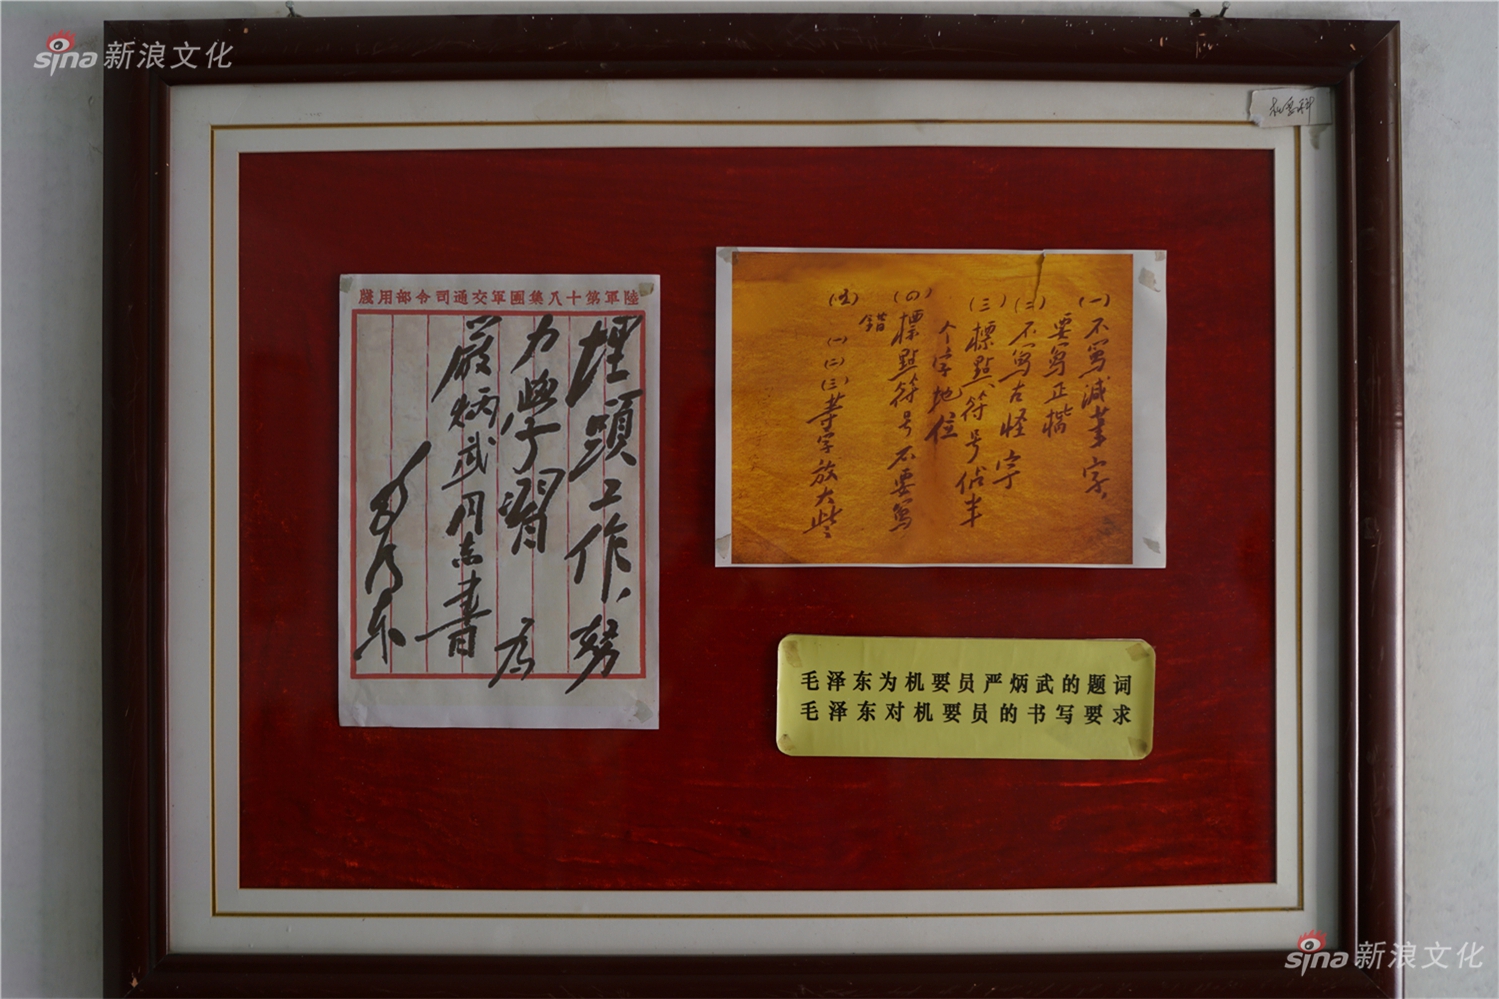 sina新浪文化
机要科
陸軍第十八集團軍交通司令部用牋
埋頭工作，努
力學習 為
嚴炳武同志書
毛澤東
(一)不寫減筆字，
要寫正楷
(二)不寫古怪字
(三)標點符号佔半
个字地位
(四)標點符号不要寫
錯
(五)(一)(二)(三)等字放大些
毛泽东为机要员严炳武的题词
毛泽东对机要员的书写要求
sina新浪文化